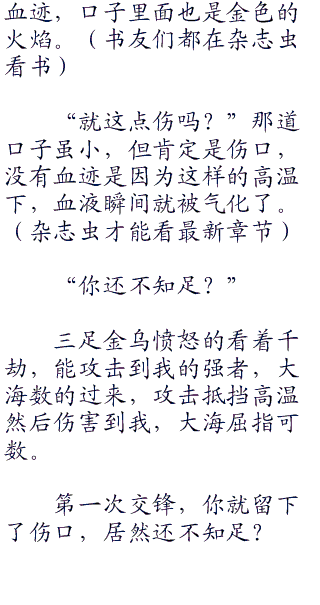 血迹，口子里面也是金色的
火焰。（书友们都在杂志虫
看书）
“就这点伤吗？”那道
口子虽小，但肯定是伤口，
没有血迹是因为这样的高温
下，血液瞬间就被气化了。
（杂志虫才能看最新章节）
“你还不知足？”
三足金乌愤怒的看着千
劫，能攻击到我的强者，大
海数的过来，攻击抵挡高温
然后伤害到我，大海屈指可
数。
第一次交锋，你就留下
了伤口，居然还不知足？